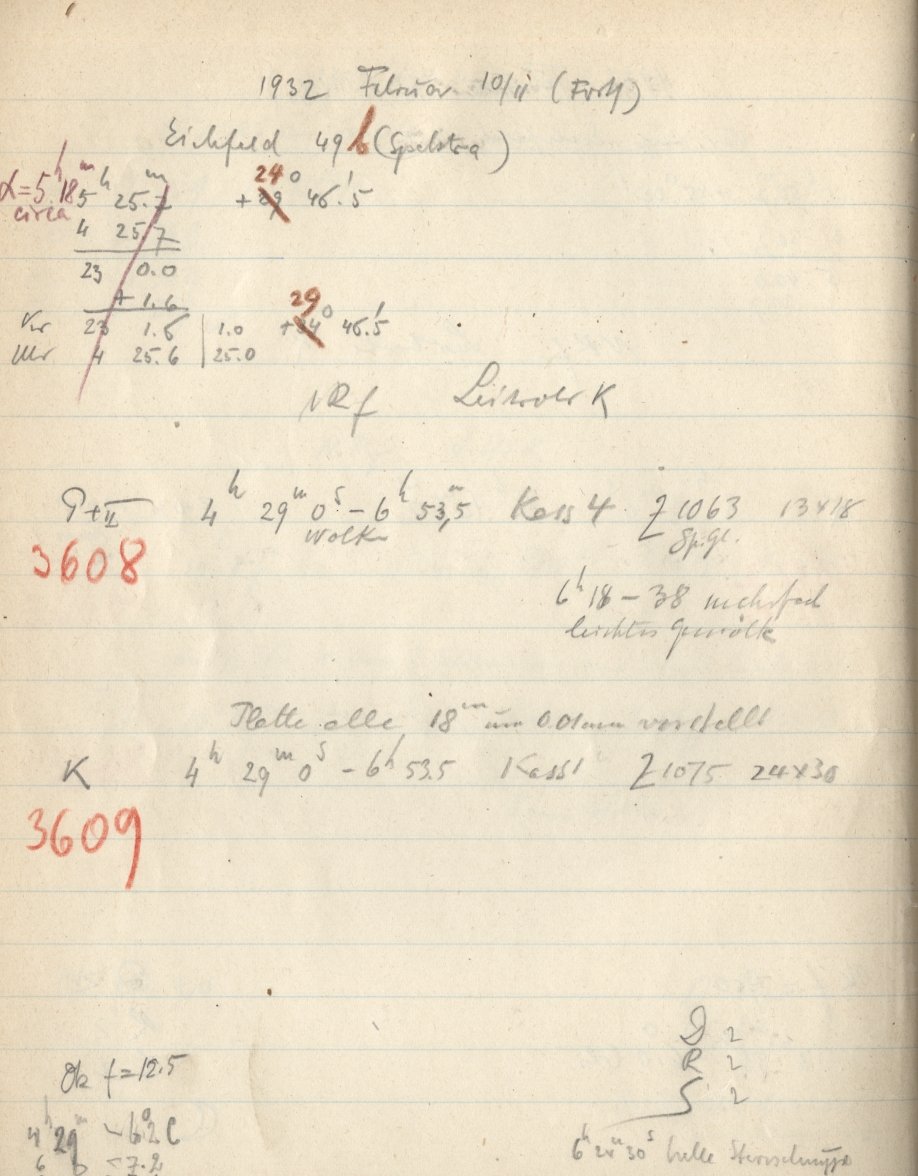 1932 Februar 10/11 (Forts)
Eichfeld 49b (Spektra)
α=5h 18m circa
5h 25.7m +29 24° 46.'5
4 25.7
23 0.0
+1.6
23 1.6 | 1.0 +24 29° 46.'5
Uhr 4 25.6 | 25.0
Leitrohr K
P+II 4h 29m 0s – 6h 53,5m Kass 4 Z 1063 13×18
Wolken Sp.gl.
3608
6h 18 – 38 mehrfach
leichtes Gewölk
Platte alle 18m um 0.01mm verstellt
K 4h 29m 0s – 6h 53.5 Kass 1 Z 1075 24×30
3609
D 2
R 2
S 2
Ok f=12.5
4h 29m –6.2 C
6 –7.2
6h 30s helle Sternschnuppe